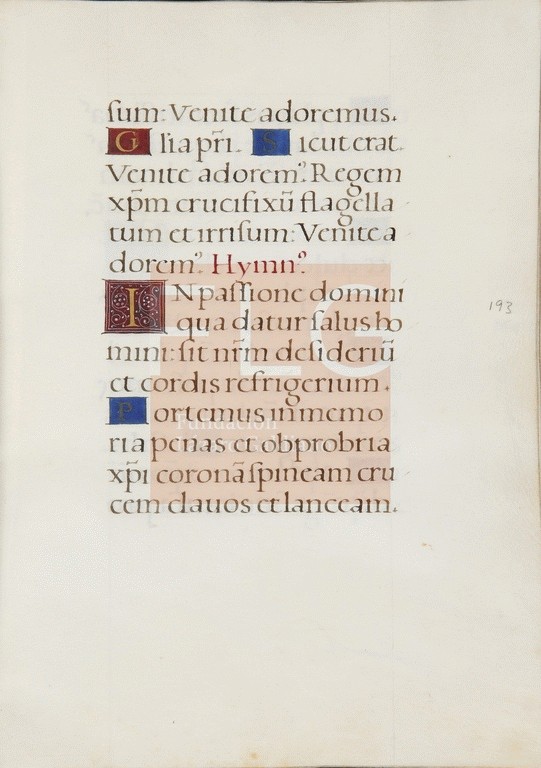 sum: Venite adoremus.
Glia pr̃i. Sicut erat.
Venite adorem⁹. Regem
xp̃m crucifixũ flagella
tum et irrisum: Venite a
dorem⁹. Hymn⁹.
IN passione domini
qua datur salus ho
mini: sit nr̃m desideriũ
et cordis refrigerium.
Portemus in memo
ria penas et obprobria
xp̃i coronã spineam cru
cem clauos et lanceam.
193
FLG
Fundación